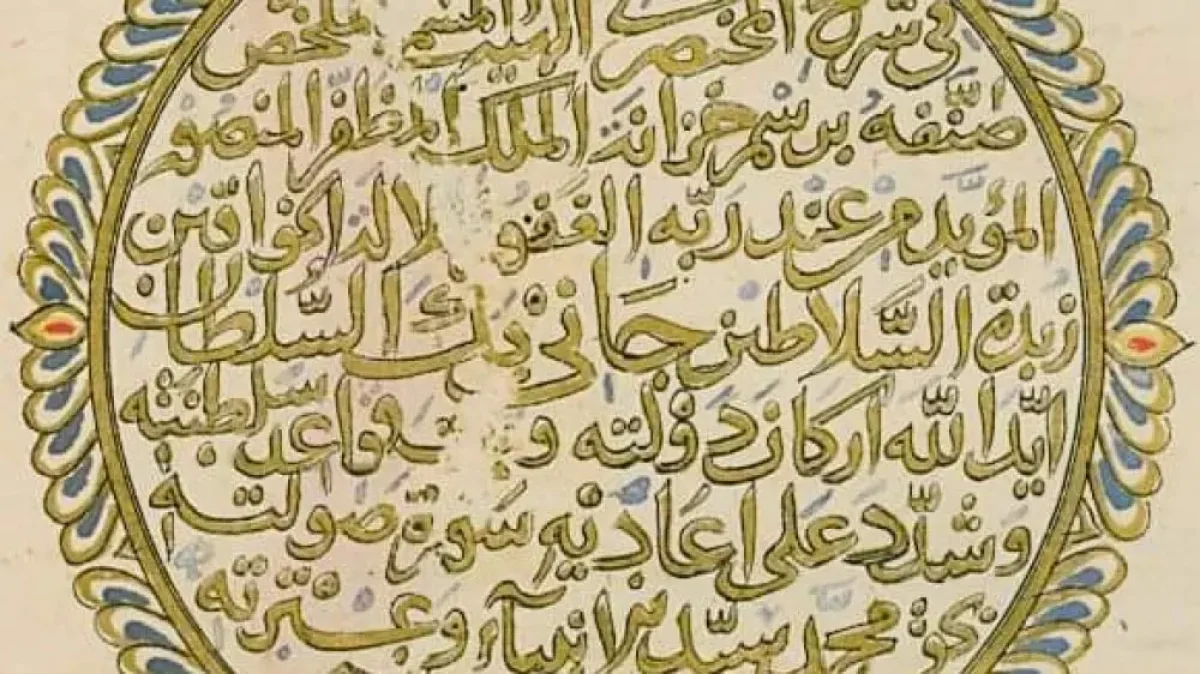 في شرح المختصر ملخص
صنفه برسم خزانة الملك المظفر المنصور
المؤيد من عند ربه الغفور
زبدة السلاطين جاني بك السلطان
ايد الله اركان دولته و قواعد سلطنته
وشدد على اعاديه سورة صولته
محمد سيد الانبياء وعترته